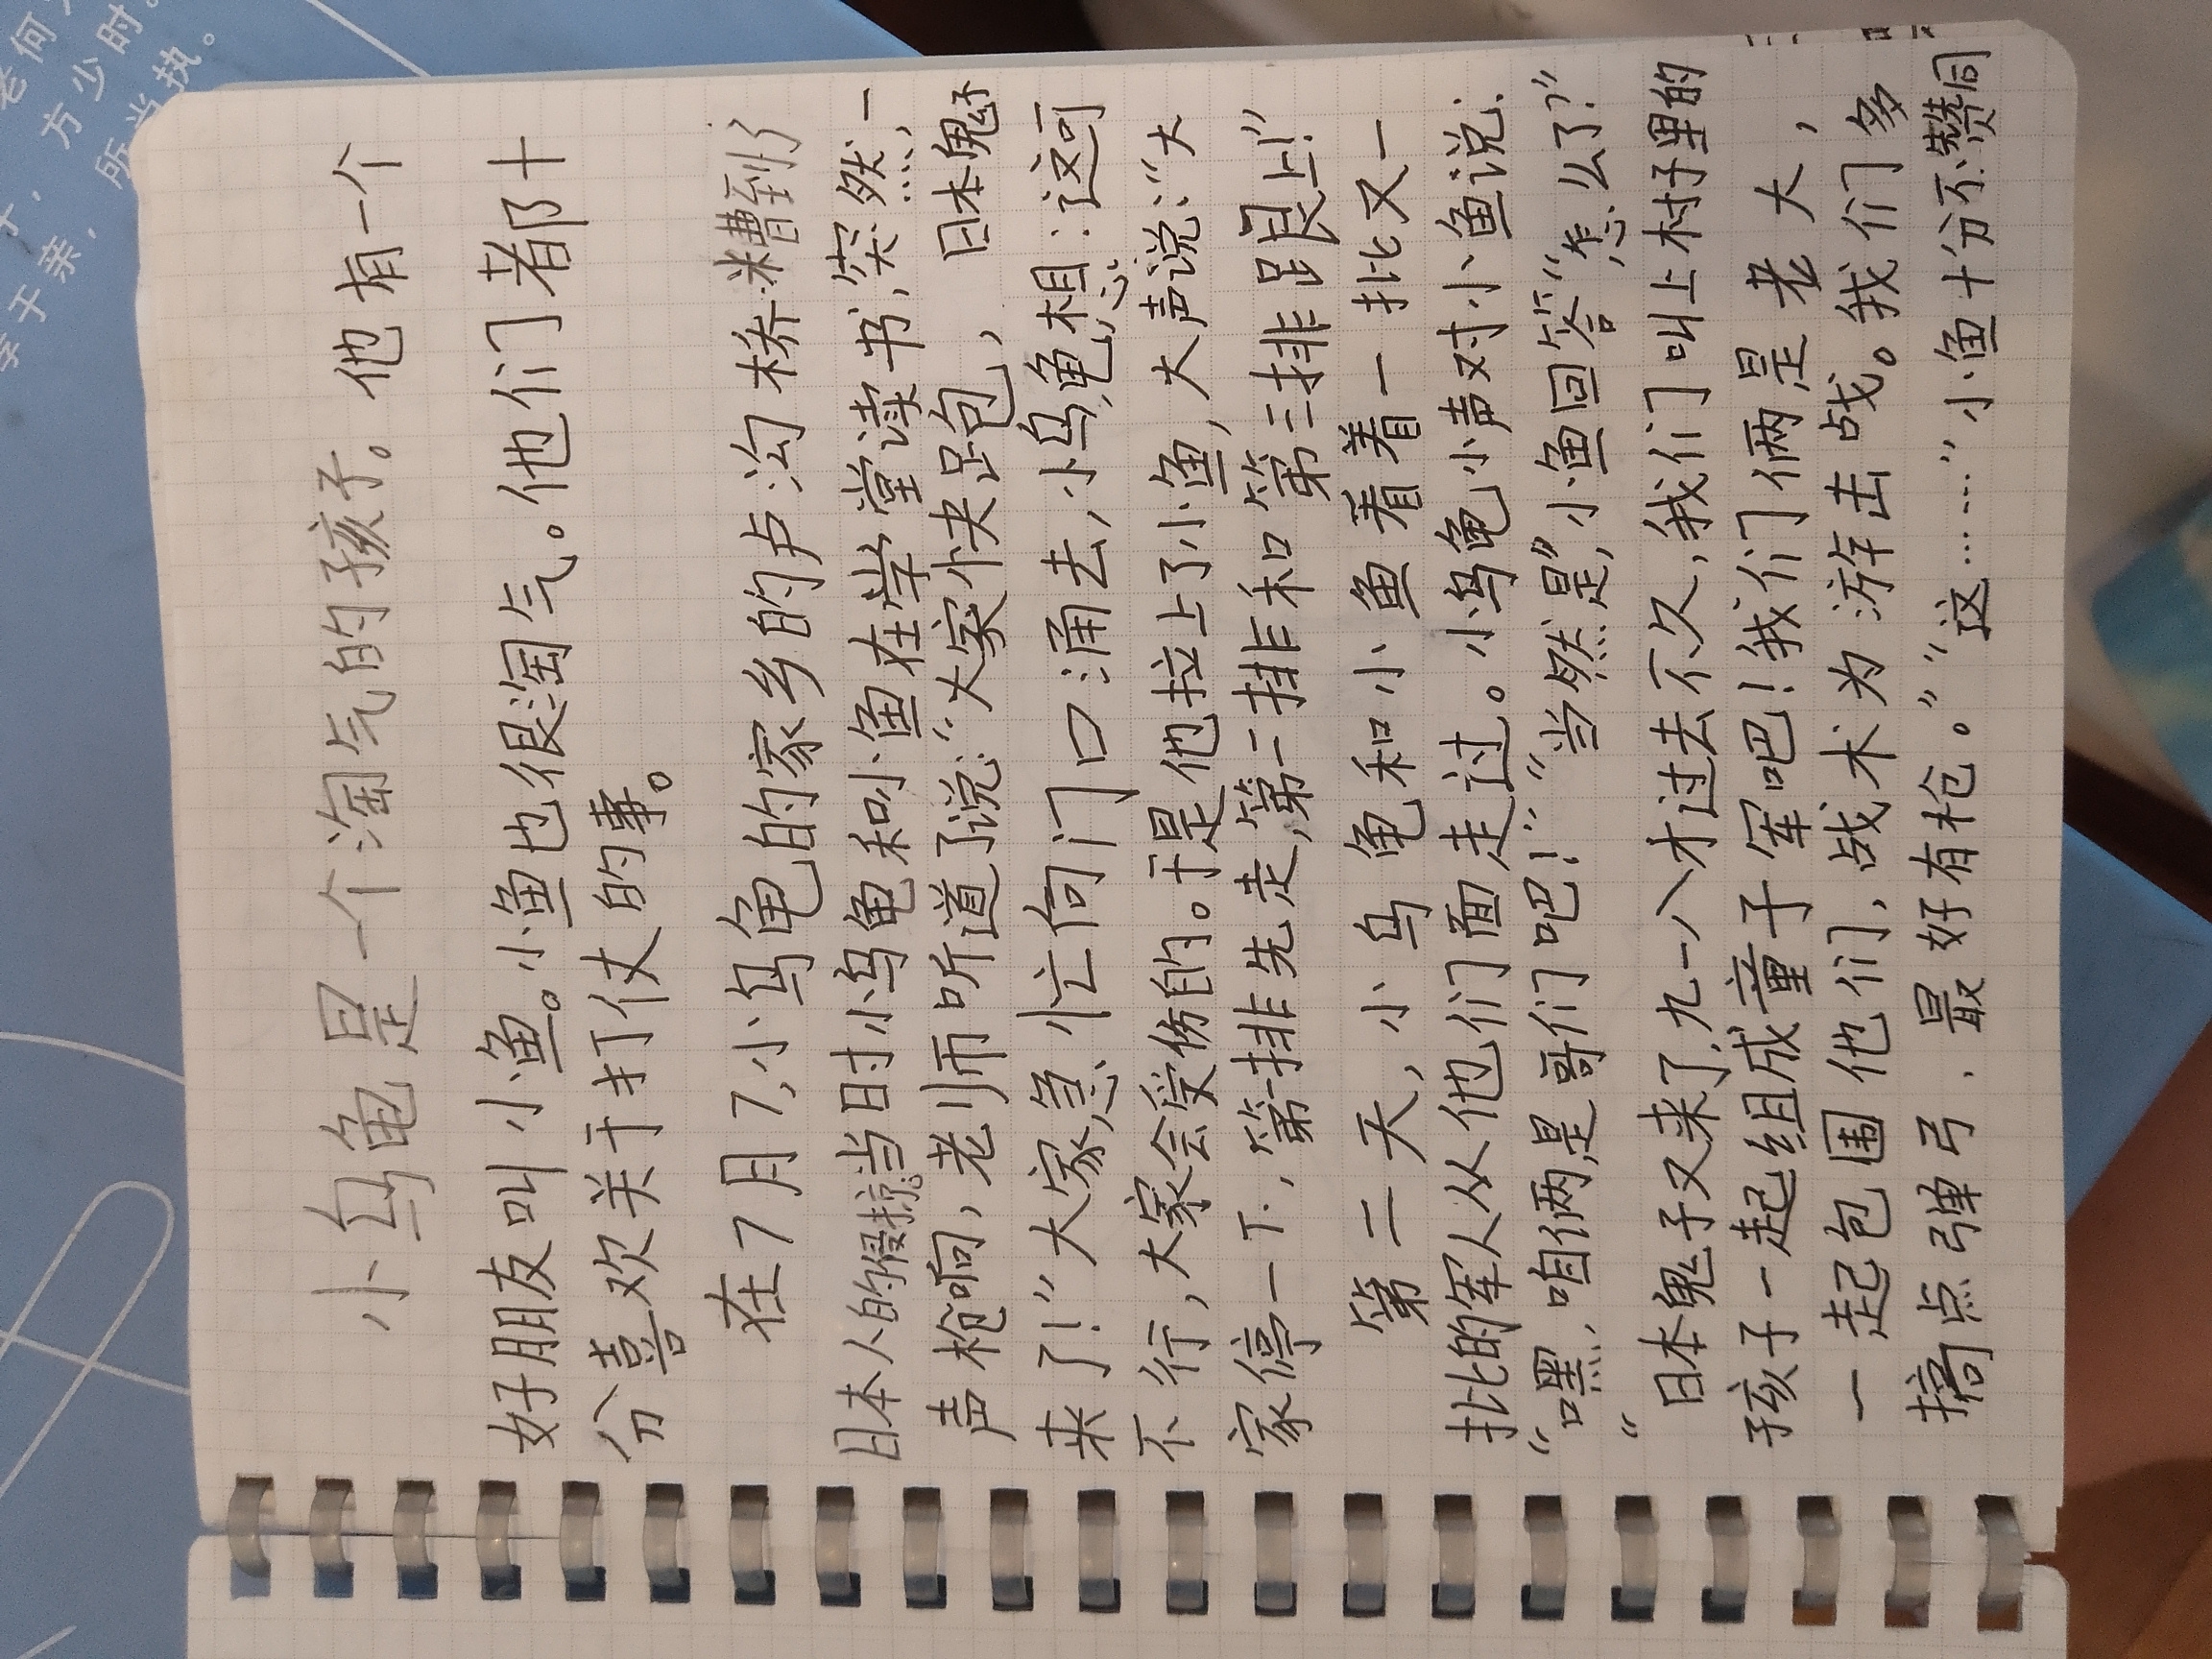 小乌龟是一个淘气的孩子。他有一个
好朋友叫小鱼。小鱼也很淘气。他们都十
分喜欢关于打仗的事。
在7月7,小乌龟的家乡的卢沟桥糟到了
日本人的侵掠,当日时小乌龟和小鱼在学堂读书,突然,一
声枪响,老师听道了说:“大家快跑, 日本鬼子
来了!”大家急忙向门口涌去,小乌龟想:这可
不行,大家会受伤的。于是他拉上了小鱼,大声说:“大
家停一下,第一排先走,第二排和第三排跟上!”
第二天,小乌龟和小鱼看着一批又一
批的军人从他们面走过。小乌龟小声对小鱼说:
“嘿,咱俩是哥们吧!”“当然是”,小鱼回答“怎么了?”
“日本鬼子又来了,九一八才过去不久,我们叫上村子里的
孩子一起组成童子军吧!我们俩是老大,
一起包围他们,战术为游击战。我们多
搞点弹弓,最好有枪。”“这……”小鱼十分不赞同
老何
方少时
所当执。
孝于亲,